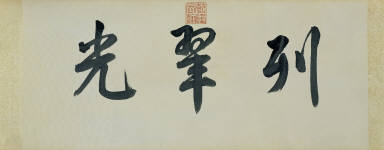 列翠光